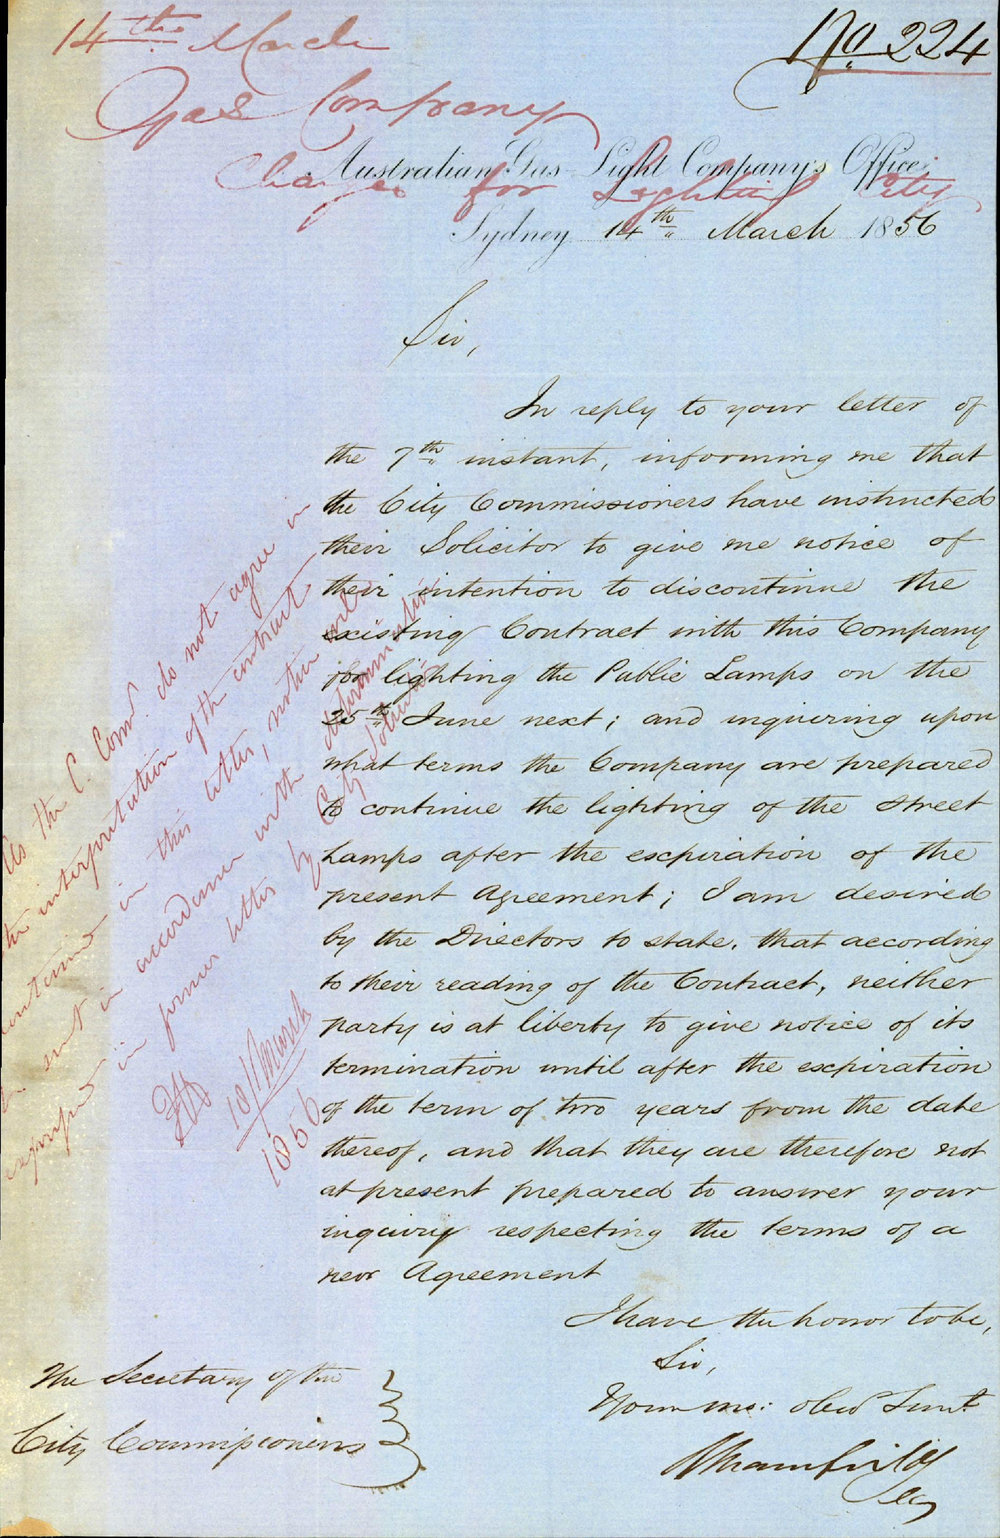 14th March
No 224
Gas Company
Charges for Lighting City
Australian Gas Light Company's Office,
Sydney 14th March 1856
Sir,
In reply to your letter of
the 7th instant, informing me that
the City Commissioners have instructed
their Solicitor to give me notice of
their intention to discontinue the
existing Contract with this Company
for lighting the Public Lamps on the
25th June next; and inquiring upon
what terms the Company are prepared
to continue the lighting of the Street
Lamps after the expiration of the
present Agreement; I am desired
by the Directors to state, that according
to their reading of the Contract, neither
party is at liberty to give notice of its
termination until after the expiration
of the term of two years from the date
thereof, and that they are therefore not
at present prepared to answer your
inquiry respecting the terms of a
new Agreement
I have the honor to be,
Sir,
Your mo: obed Servt
The Secretary of the
City Commissioners
As the C. Comrs. do not agree in
the interpretation of the contract
contained in this letter, notice
sent in accordance with determination
expressed in former letter by City Solicitor
18/March
1856